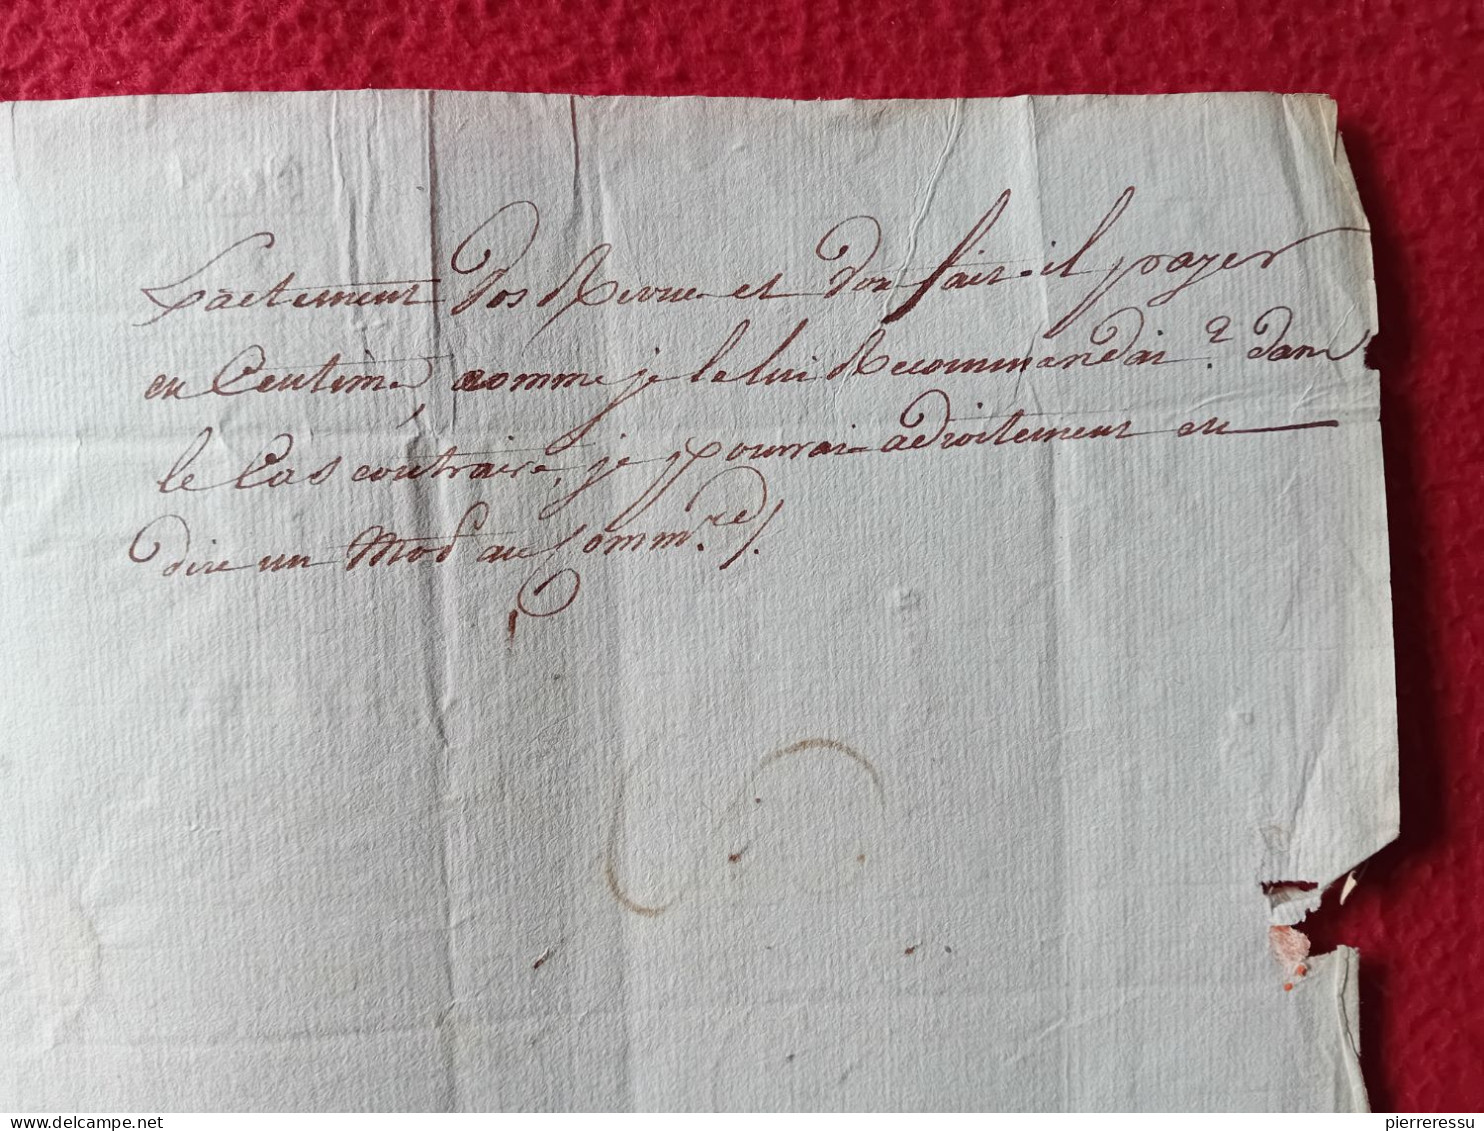 Exactement vos Revue et vous fait-il payer
en Centime, comme je le lui Recommandai ? dans
le Cas contraire, je pourrai adroitement en
dire un Mot au Comm.re /.
delcampe.net
pierreressu